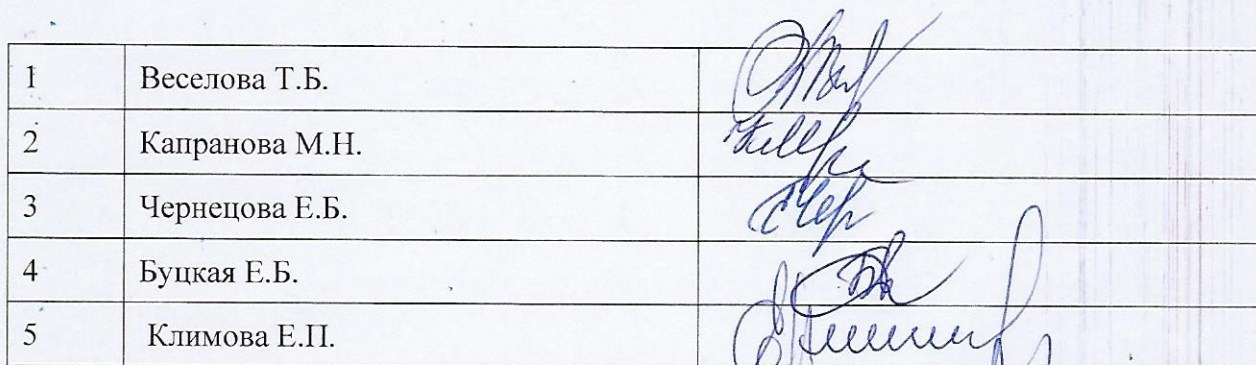 1 Веселова Т.Б.
2 Капранова М.Н.
3 Чернецова Е.Б.
4 Буцкая Е.Б.
5 Климова Е.П.